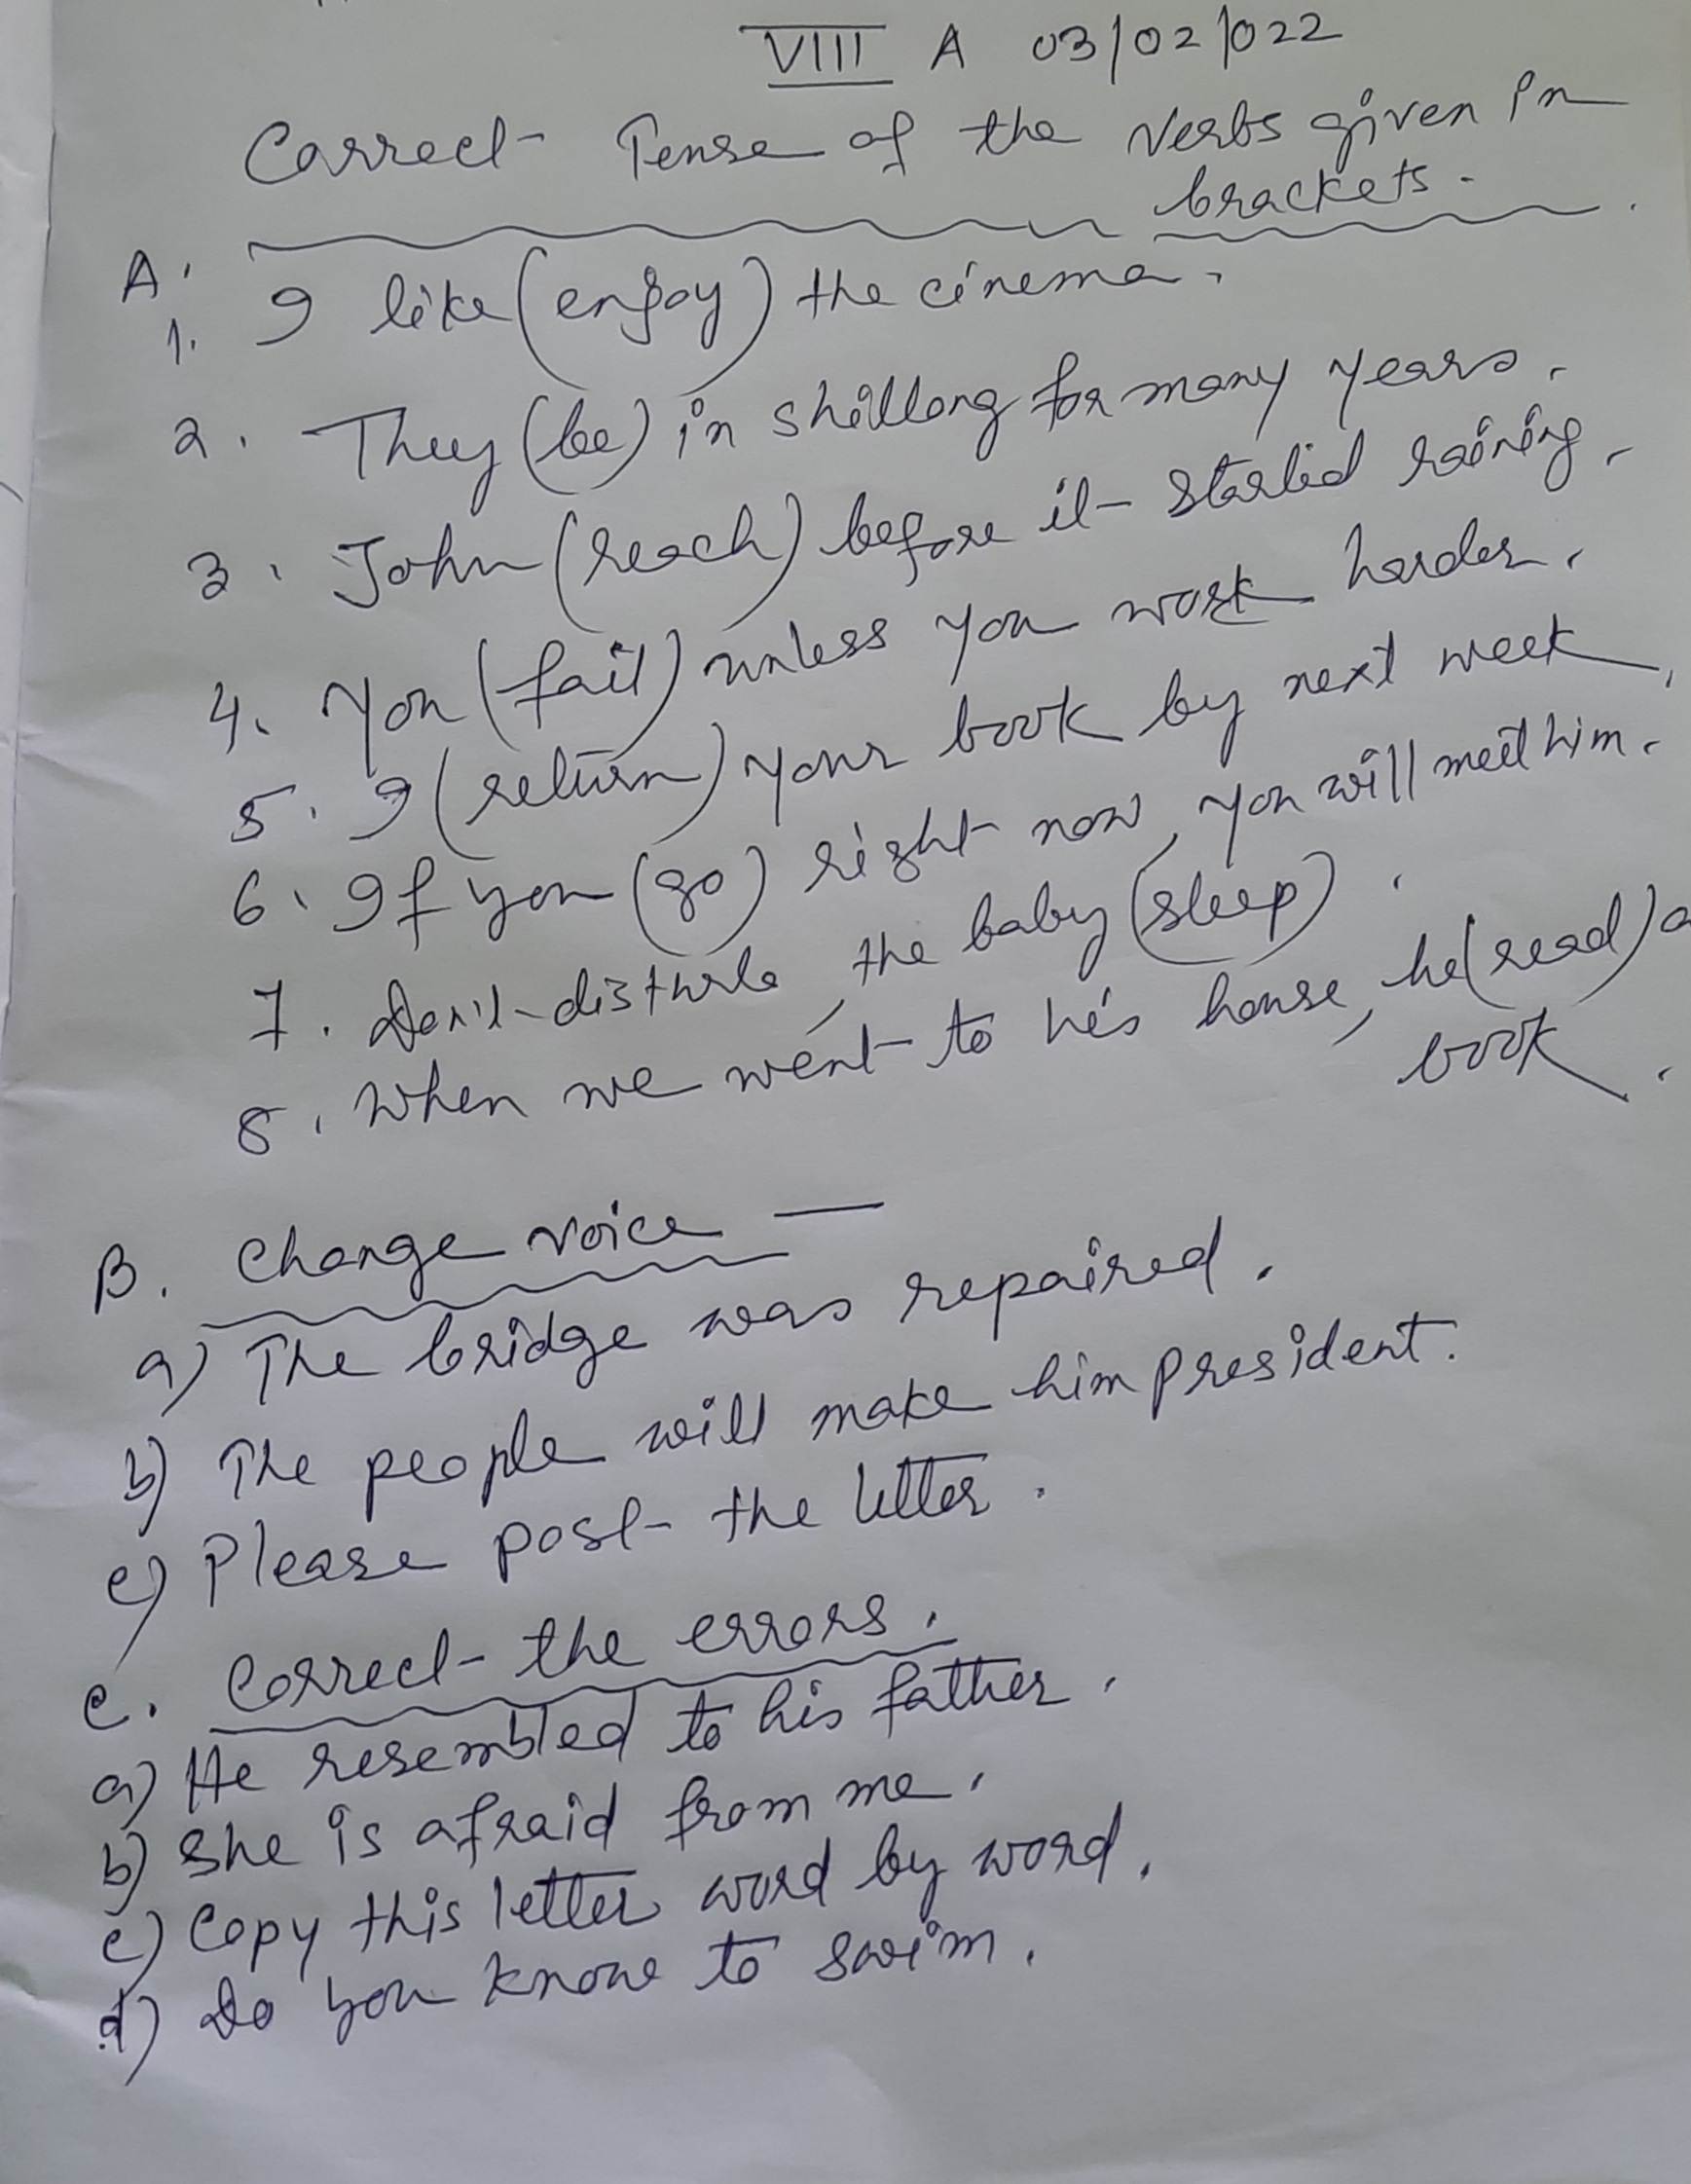 VIII A 03/02/022
Correct Tense of the Verbs given in
brackets.
A.
1. I like (enjoy) the cinema.
2. They (be) in shillong for many years.
3. John (reach) before it started raining.
4. You (fail) unless you work harder.
5. I (return) your book by next week.
6. If you (go) right now, you will meet him.
7. Don't disturb, the baby (sleep).
8. When we went to his house, he (read) a
book.
B. Change voice —
a) The bridge was repaired.
b) The people will make him president.
c) Please post the letter.
C. Correct the errors.
a) He resembled to his father.
b) She is afraid from me.
c) Copy this letter word by word.
d) Do you know to swim.